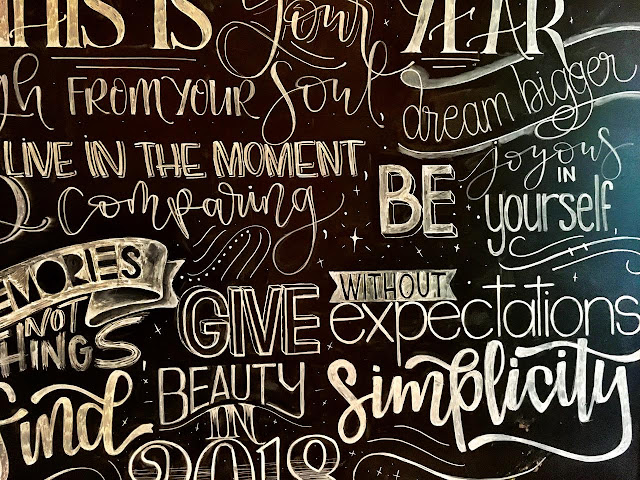 THIS IS your YEAR
gh FROM YOUR Soul,
dream bigger
LIVE IN THE MOMENT,
& comparing
BE joyous IN yourself,
EMORIES
NOT
THINGS
GIVE WITHOUT expectations
find BEAUTY IN simplicity
2018